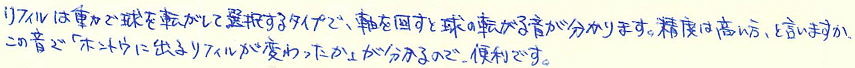 リフィルは重力で球を転がして選択するタイプで、軸を回すと球の転がる音が分かります。精度は高い方、と言いますか、
この音で「ホントウに出るリフィルが変わったか」が分かるので、便利です。